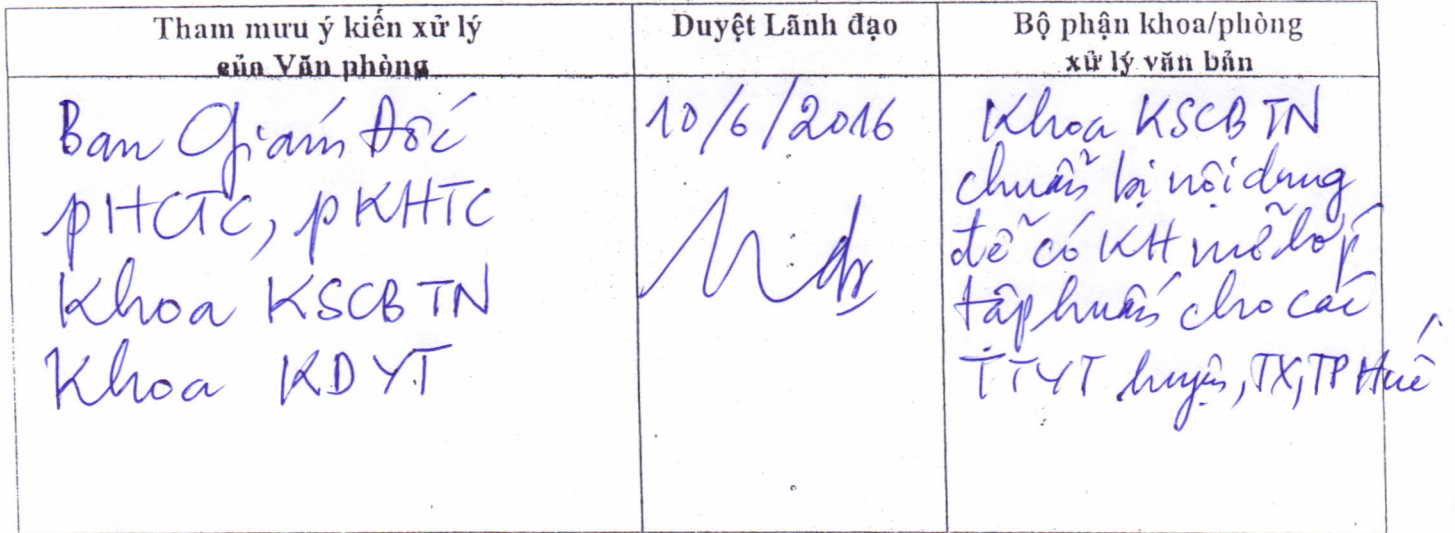 Tham mưu ý kiến xử lý
của Văn phòng
Duyệt Lãnh đạo
Bộ phận khoa/phòng
xử lý văn bản
Ban Giám đốc
pHCTC, pKHTC
Khoa KSCBTN
Khoa KDYT
10/6/2016
Khoa KSCBTN
chuẩn bị nội dung
để có KH mở lớp
tập huấn cho các
TTYT huyện, TX, TP Huế